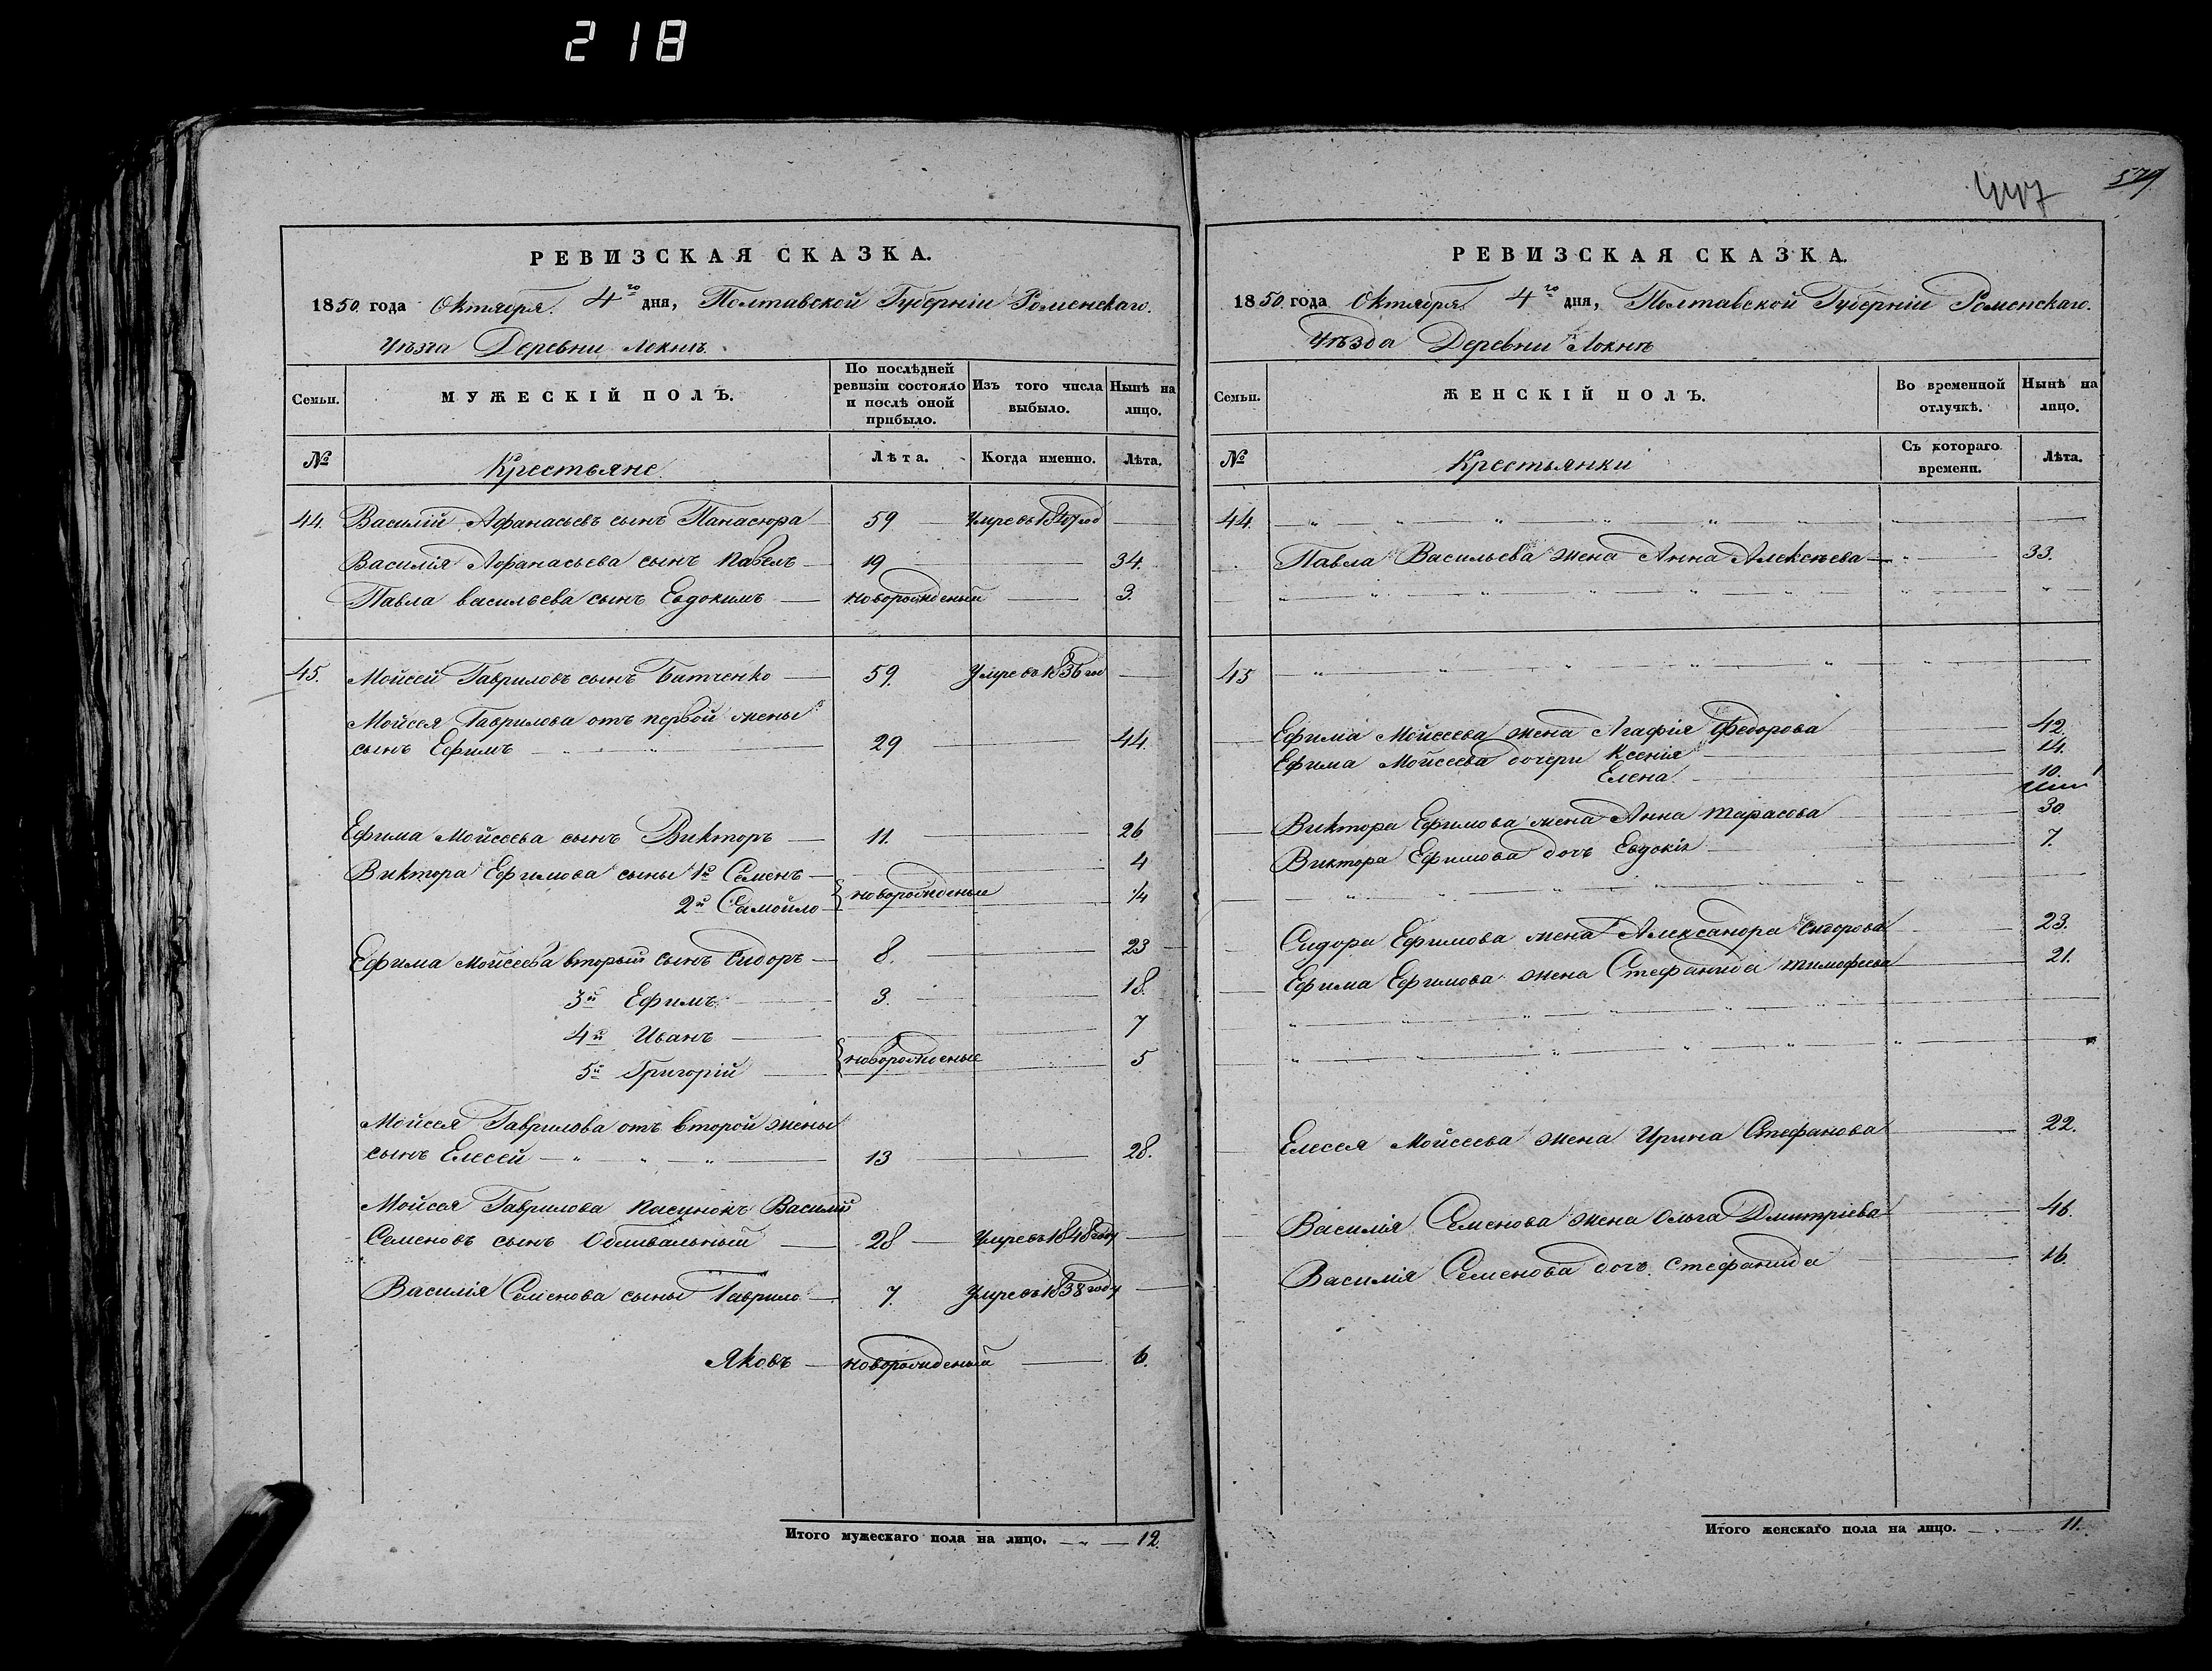 218
447
579
РЕВИЗСКАЯ СКАЗКА.
1850 года Октября 4го дня, Полтавской Губерніи Роменскаго.
Уѣзда Деревни Локнѣ
Семьи.
МУЖЕСКІЙ ПОЛЪ.
По послѣдней ревизіи состояло и послѣ оной прибыло.
Изъ того числа выбыло.
Нынѣ на лицо.
№
Крестьяне
Лѣта.
Когда именно.
Лѣта.
44. Василій Афанасьевъ сынъ Панасюра 59 Умре въ 1847 год
Василія Афанасьева сынъ Павелъ 19 34.
Павла Васильева сынъ Евдокимъ новорожденый 3.
45. Мойсей Гавриловъ сынъ Батченко 59. Умре въ 1836 год
Мойсея Гаврилова отъ первой жены
сынъ Ефимъ 29 44.
Ефима Мойсеева сынъ Викторъ 11. 26
Виктора Ефимова сыны 1й Семенъ 4
2й Самойло новорожденые 1/4
Ефима Мойсеева вторый сынъ Сидоръ 8. 23
3й Ефимъ 3. 18.
4й Иванъ 7
5й Григорій новорожденые 5
Мойсея Гаврилова отъ второй жены
сынъ Елесей 13 28.
Мойсея Гаврилова пасынокъ Василій
Семеновъ сынъ 28 Умре въ 1848 году
Василія Семенова сыны Гаврило 7. Умре въ 1838 году
Яковъ новорожденый 6.
Итого мужескаго пола на лицо. 12.
РЕВИЗСКАЯ СКАЗКА.
1850 года Октября 4го дня, Полтавской Губерніи Роменскаго.
Уѣзда Деревни Локнѣ
Семьи.
ЖЕНСКІЙ ПОЛЪ.
Во временной отлучкѣ.
Нынѣ на лицо.
№
Крестьянки
Съ котораго времени.
Лѣта.
44.
Павла Васильева жена Анна Алексѣева 33.
45
Ефима Мойсеева жена Агафія Федорова 42.
Ефима Мойсеева дочери Ксенія 14.
Елена 10.
Виктора Ефимова жена Анна Тарасова 30.
Виктора Ефимова дочь Евдокія 7.
Сидора Ефимова жена Александра Сидорова 23.
Ефима Ефимова жена Стефанида Тимофеева 21.
Елесея Мойсеева жена Ирина Стефанова 22.
Василія Семенова жена Ольга Дмитріева 46.
Василія Семенова дочь Стефанида 16.
Итого женскаго пола на лицо. 11.